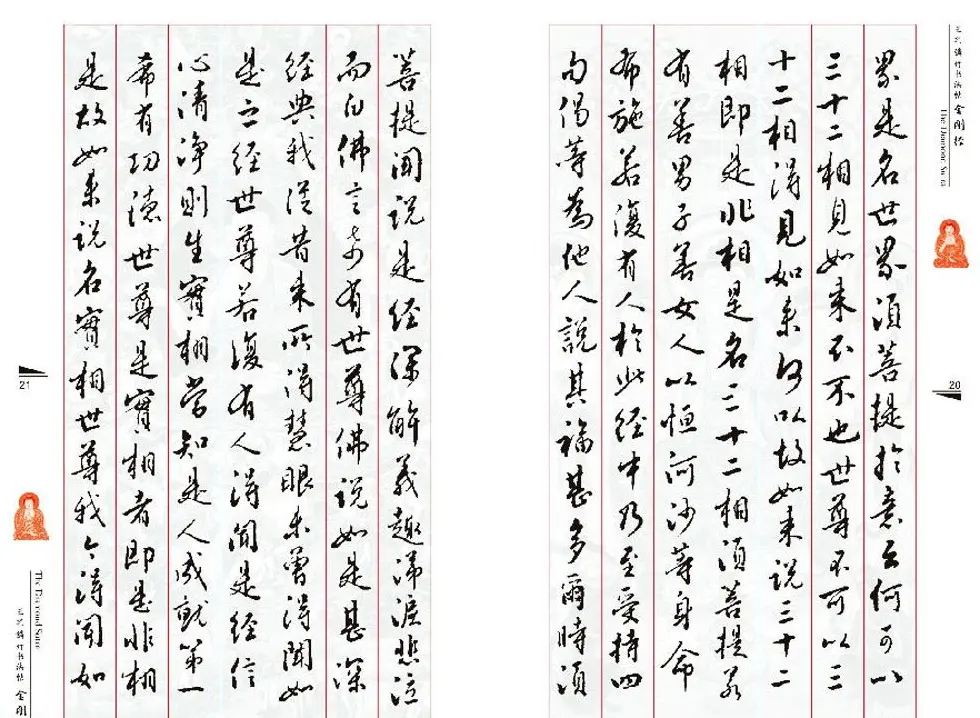 金刚经
The Diamond Sutra
20
界是名世界須菩提於意云何可以
三十二相見如来不不也世尊不可以三
十二相得見如来何以故如来説三十二
相即是非相是名三十二相須菩提若
有善男子善女人以恒河沙等身命
布施若復有人於此經中乃至受持四
句偈等為他人說其福甚多爾時須
菩提聞說是經深解義趣涕淚悲泣
而白佛言希有世尊佛說如是甚深
經典我從昔来所得慧眼未曾得聞如
是之經世尊若復有人得聞是經信
心清淨則生實相當知是人成就第一
希有功德世尊是實相者即是非相
是故如来說名實相世尊我今得聞如
21
The Diamond Sutra
行书法帖 金刚